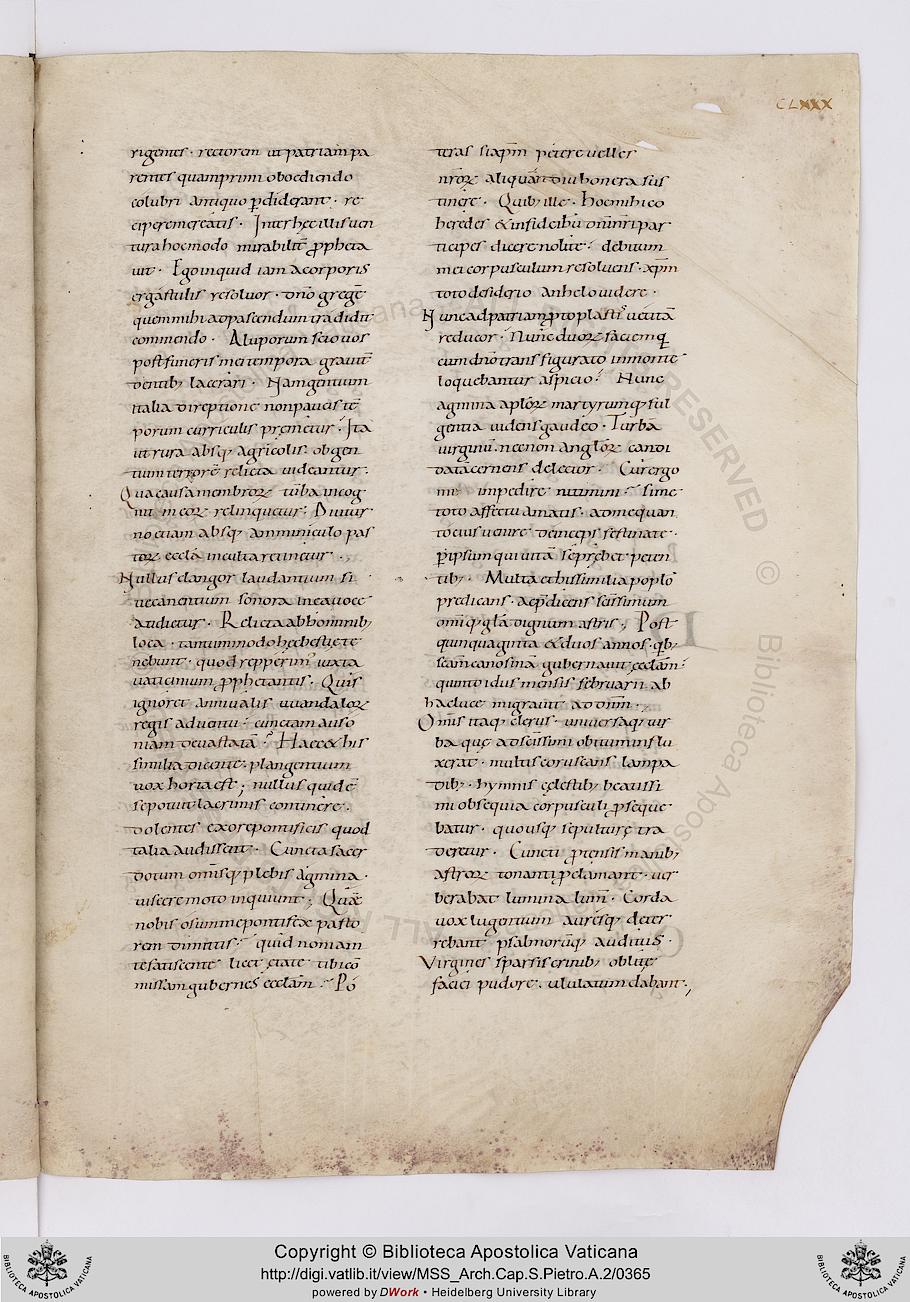 CLXXX
rigentes · rectorem ut patriam pa
rentes quam primi oboediendo
colubri antiquo ꝑdiderant · re
cipere mereatis · Inter hęc illis uen
tura hoc modo mirabilit̄ ꝓpheta
uit · Ego inquid iam a corporis
ergastulis resoluor · dn̄o gregē
quem mihi ad pascendum tradidit
commendo · A luporum scio uos
post funeris mei tempora grauit̄
dentib; lacerari · Nam gentium
italia direptione non paucis tē
porum curriculis p̄metur · Ita
ut rura absq; agricolis · ob gen
tium terrorē relicta uideantur ·
Qua causa membroꝝ turba incog
nit
no etiam absq; amminiculo pas
tor eccl̄a inculta retinetur ·
Nullus clangor laudantium si
ue canentium sonora in ea uoce
audietur · Relicta ab hominib;
loca · tantummodo hęc bestię te
nebunt · quod repperim' iuxta
uaticinium ꝓphetantis · Quis
ignoret annualis uuandaloꝝ
regis aduentu · cunctam auso
niam deuastatā · Haec & his
similia dicente · plangentium
uox horta est ; nullus quidē
se potuit lacrimis continere ·
dolentes ex ore pontificis quod
talia audissent · Cuncta sacer
dotum omisq; plebis agmina ·
uiscere moto inquiunt ; Quæ
nobis o summe pontifex pasto
rem dimittis · quid non iam
te fatiscente licet ętate tibi cō
missam gubernes eccl̄am · Pó
teras si ap̄m petere uelles
nr̄oꝝ aliquandiu honera sus
tinere · Quib; ille · Hoc mihi co
heredes & insidelib; omnī par
ticipes dicere nolite · debitum
mei corpusculum resoluens · xp̄m
toto desiderio anhelo uidere ·
Nunc ad patriam ꝓtoplasti uetitā
reducor · Nunc duoꝝ faciemq;
cum dn̄o transfigurato in monte
loquebantur aspicio · Nunc
agmina ap̄loꝝ martyrumq; ful
gentia uidens gaudeo · Turbā
uirginū · necnon angloꝝ candi
datā cernens delector · Cur ergo
me impedire nitimini · si me
toto affectu amatis · ad me quan
tocius uenire deinceps festinate ·
ꝑ ipsum qui uitā se p̄bet peten
tib; · Multa et his similia pop̄lo
predicans · ac p̄dicens sc̄issimum
omiq; gl̄a dignum astris ; Post
quinquaginta & duos annos · q̄b;
sc̄am canosinā gubernauit eccl̄am ·
quinto idus mensis februarii ab
hac luce migrauit ad dn̄m ·
Omis itaq; clerus · uniuersaq; tur
ba quę ad sc̄issimi obitum influ
xerat · multis coruscans lampa
dib; · hymnis cęlestib; beatissi
mi obsequia corpusculi ꝓseque
batur · quousq; sepulturę tra
deretur · Cuncti ꝓtensis manib;
astroꝝ tonanti ꝓclamant · uer
berabat lumina lum̄ · Corda
uox lugentium auresq; deter
rebant psalmorūq; auditus ·
Virgines sparsis crinib; oblitę
faciei pudore · ululatum dabant ·
Copyright © Biblioteca Apostolica Vaticana
http://digi.vatlib.it/view/MSS_Arch.Cap.S.Pietro.A.2/0365
powered by DWork • Heidelberg University Library